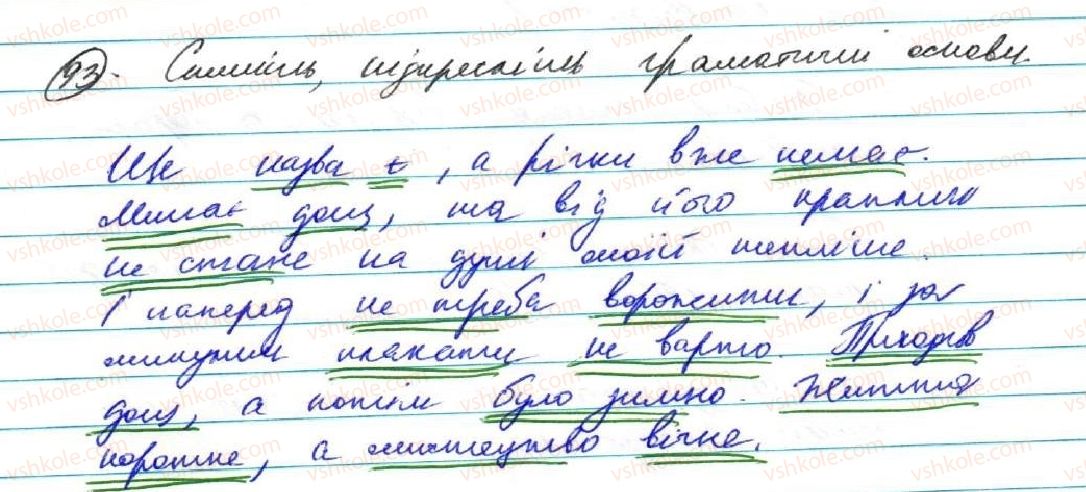 93. Спишіть, підкресліть граматичні основи.
Ще назва є, а річки вже немає.
Минає дощ, та від його краплин
не стане на душі моїй тепліше.
І наперед не треба ворожити, і за
минулим плакати не варто. Приходив
дощ, а потім було зимно. Життя
коротке, а мистецтво вічне.